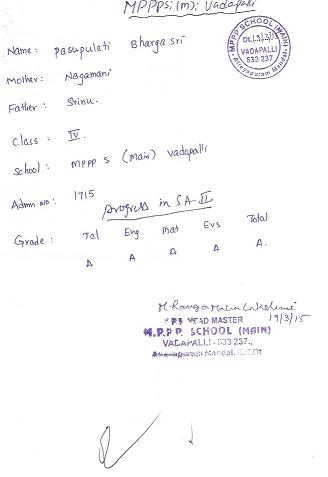 MPPPS; (M); Vadapalli
MPPP SCHOOL (MAIN)
VADAPALLI
533 237
Atreyapuram Mandal
Name: Pasupuleti Bharga sri
Mother: Nagamani
Father: Srinu.
Class: IV.
School: MPPP S (Main) Vadapalli
Admn No: 1715
progress in SA-II
Grade: Tel Eng mat Evs Total
A A A A A.
19/3/15
HEAD MASTER
M.P.P.P. SCHOOL (MAIN)
VADAPALLI - 533 237.,
Mandal, E.G.Dt